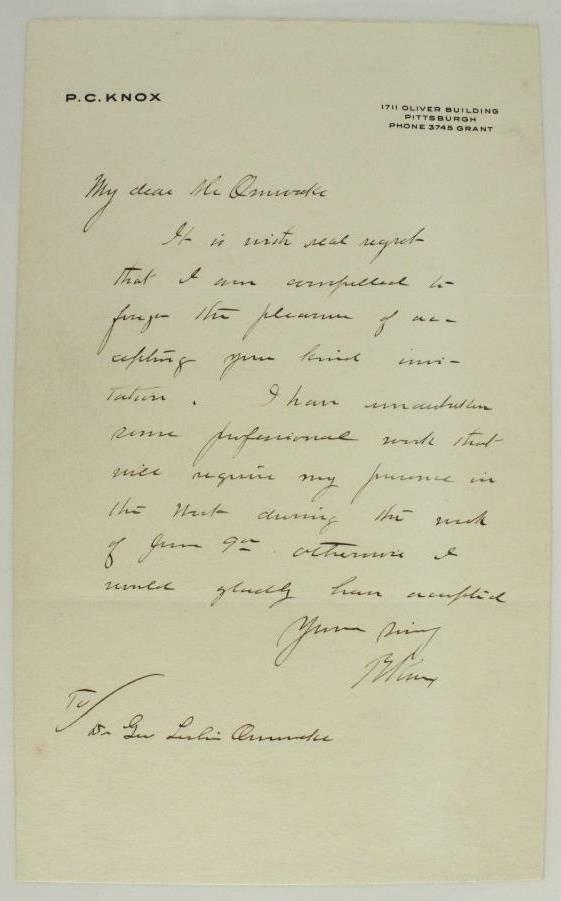 P.C. KNOX
1711 OLIVER BUILDING
PITTSBURGH
PHONE 3745 GRANT
My dear Mr Omwake
It is with real regret
that I am compelled to
forego the pleasure of ac-
cepting your kind invi-
tation. I have undertaken
some professional work that
will require my presence in
the West during the week
of June 9th otherwise I
would gladly have accepted
Yours sincy
P C Knox
To/
Dr Geo Leslie Omwake